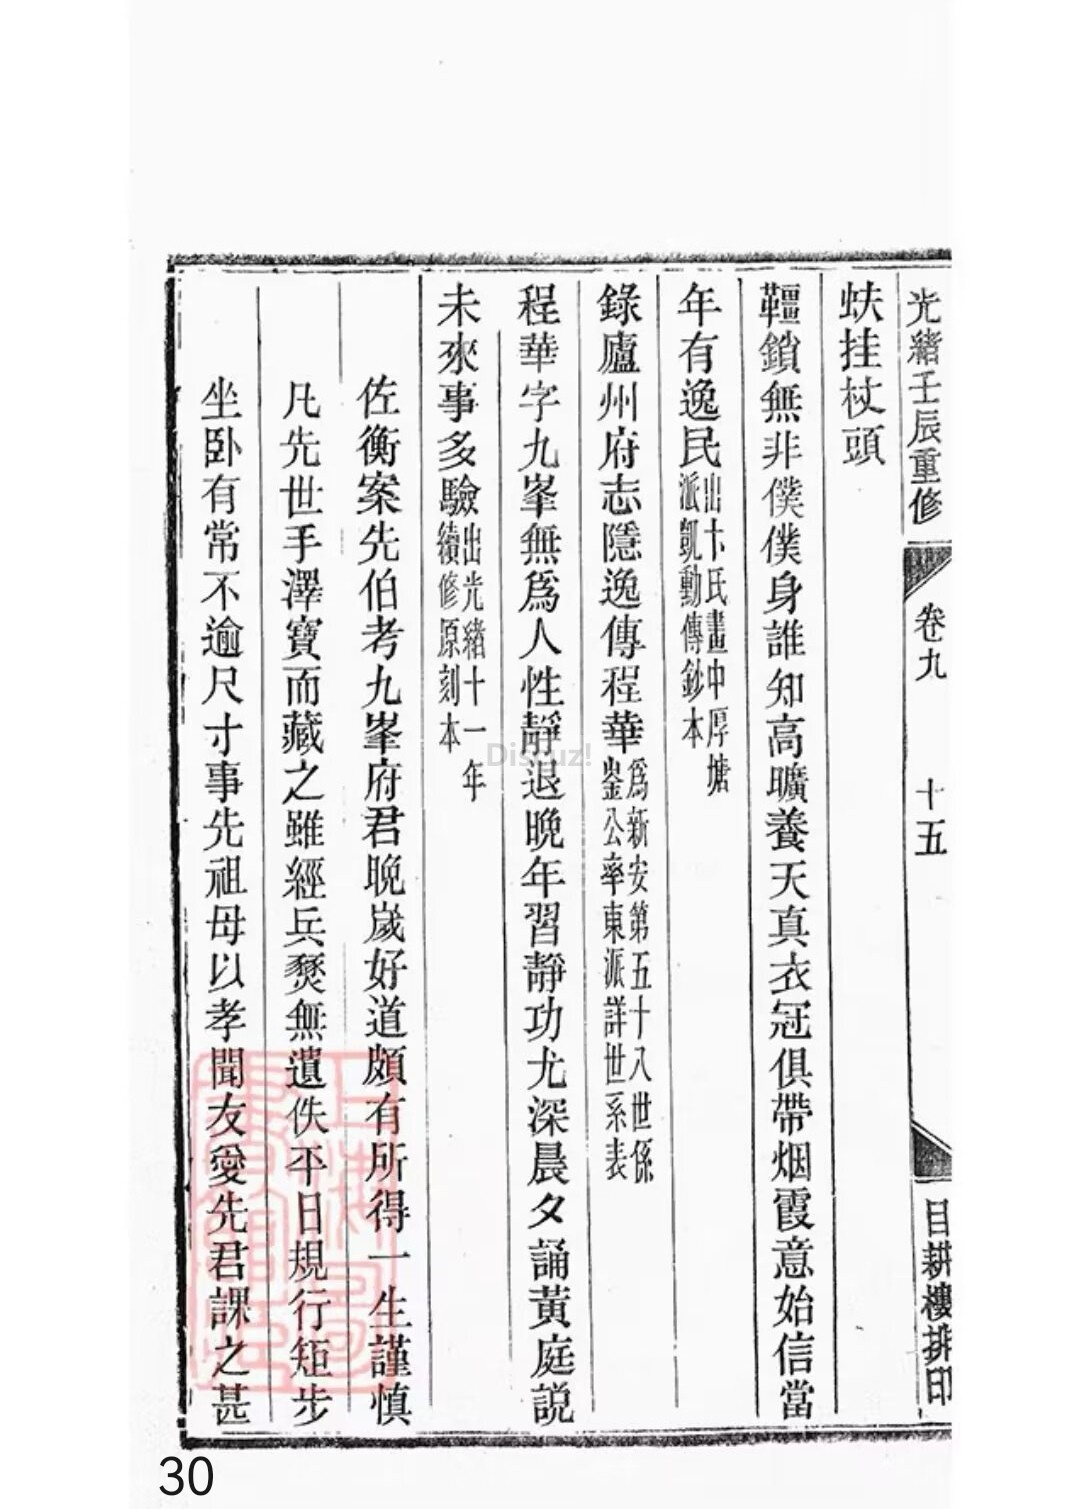 光緒壬辰重修
卷九
十五
目耕樓排印
蚨挂杖頭
韁鎖無非僕僕身誰知高曠養天真衣冠俱帶烟霞意始信當
年有逸民出卞氏畫中厚塘
派凱動傳鈔本
錄廬州府志隱逸傳程華爲新安第五十八世係
鉴公率東派詳世系表
程華字九峯無爲人性靜退晚年習靜功尤深晨夕誦黃庭説
未來事多驗出光緒十一年
續修原刻本
佐衡案先伯考九峯府君晚歲好道頗有所得一生謹慎
凡先世手澤寶而藏之雖經兵燹無遺佚平日規行矩步
坐卧有常不逾尺寸事先祖母以孝聞友愛先君課之甚
Discuz!
30